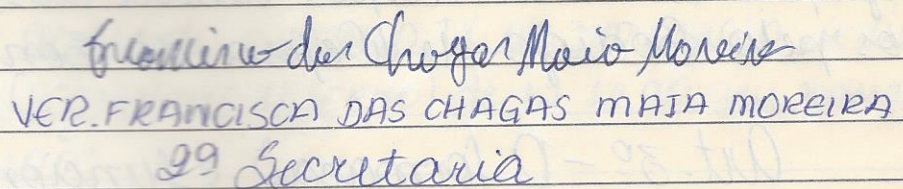 Francisca das Chagas Maia Moreira
VER. FRANCISCA DAS CHAGAS MAIA MOREIRA
2ª Secretaria